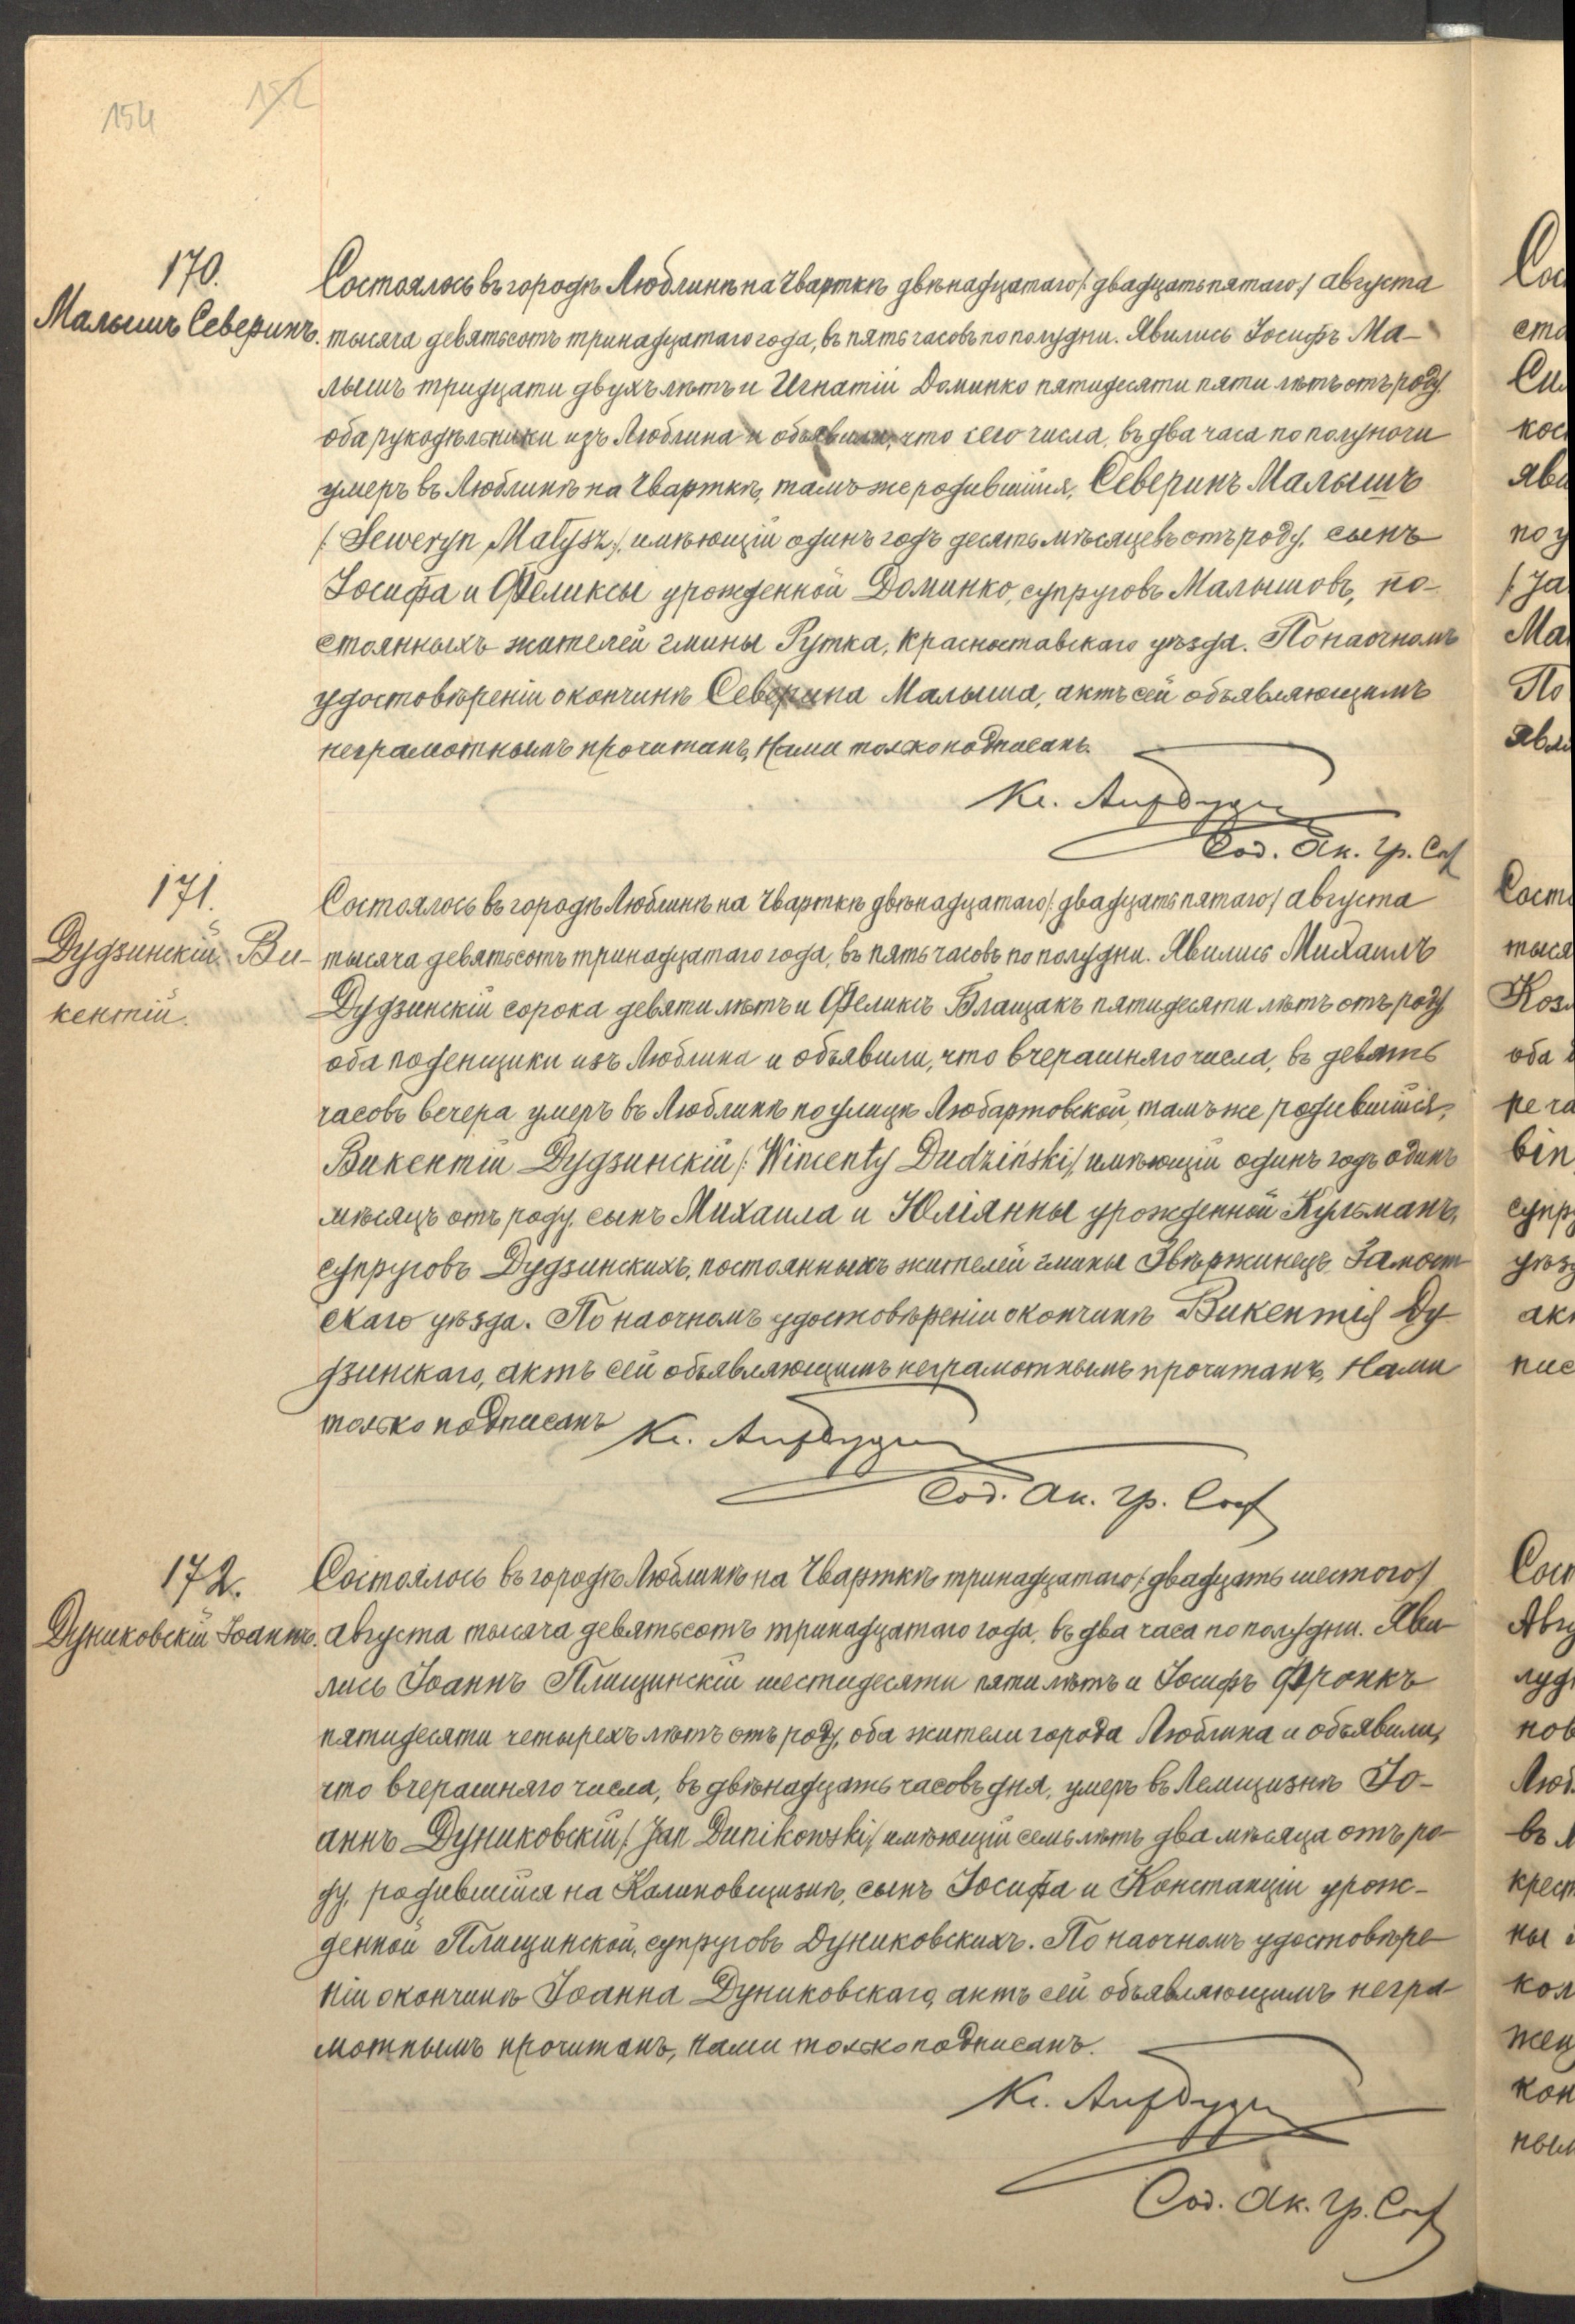 154
152
170.
Малышъ Северинъ.
Состоялось въ городѣ Люблинѣ на Чварткѣ двѣнадцатаго /:двадцать пятаго:/ августа
тысяча девятьсотъ тринадцатаго года, въ пять часовъ по полудни. Явились Іосифъ Ма-
лышъ тридцати двухъ лѣтъ и Игнатій Доминко пятидесяти пяти лѣтъ отъ роду.
оба рукодѣльники изъ Люблина и объявили, что сего числа, въ два часа по полуночи
умеръ въ Люблинѣ на Чварткѣ, тамъ же родившійся, Северинъ Малышъ
/:Seweryn Małysz:/ имѣющій одинъ годъ десять мѣсяцевъ отъ роду, сынъ
Іосифа и Феликсы урожденной Доминко, супруговъ Малышовъ, по-
стоянныхъ жителей гмины Рутка, Красноставскаго уѣзда. По наочномъ
удостовѣреніи о кончинѣ Северина Малыша, актъ сей объявляющимъ
неграмотнымъ прочитанъ, Нами только подписанъ.
Кс.
Сод. Ак. Гр. Сос
171.
Дудзинскій Ви-
кентій.
Состоялось въ городѣ Люблинѣ на Чварткѣ двѣнадцатаго /:двадцать пятаго:/ августа
тысяча девятьсотъ тринадцатаго года, въ пять часовъ по полудни. Явились Михаилъ
Дудзинскій сорока девяти лѣтъ и Феликсъ Блащакъ пятидесяти лѣтъ отъ роду
оба поденщики изъ Люблина и объявили, что вчерашняго числа, въ девять
часовъ вечера умеръ въ Люблинѣ по улицѣ Любартовской, тамъ же родившійся,
Викентій Дудзинскій /:Wincenty Dudziński:/ имѣющій одинъ годъ одинъ
мѣсяцъ отъ роду, сынъ Михаила и Юліянны урожденной Кульманъ,
супруговъ Дудзинскихъ, постоянныхъ жителей гмины Звѣржинецъ, Замост-
скаго уѣзда. По наочномъ удостовѣреніи о кончинѣ Викентія Ду-
дзинскаго, актъ сей объявляющимъ неграмотнымъ прочитанъ, Нами
только подписанъ
Кс.
Сод. Ак. Гр. Сос
172.
Дуниковскій Іоаннъ.
Состоялось въ городѣ Люблинѣ на Чварткѣ тринадцатаго /:двадцать шестого:/
августа тысяча девятьсотъ тринадцатаго года, въ два часа по полудни. Яви-
лись Іоаннъ Плищинскій шестидесяти пяти лѣтъ и Іосифъ Фронкъ
пятидесяти четырехъ лѣтъ отъ роду, оба жители города Люблина и объявили,
что вчерашняго числа, въ двѣнадцать часовъ дня, умеръ въ Лемщизнѣ Іо-
аннъ Дуниковскій /:Jan Dunikowski:/ имѣющій семь лѣтъ два мѣсяца отъ ро-
ду, родившійся на Калиновщизнѣ, сынъ Іосифа и Констанціи урож-
денной Плищинской, супруговъ Дуниковскихъ. По наочномъ удостовѣре-
ніи о кончинѣ Іоанна Дуниковскаго, актъ сей объявляющимъ негра-
мотнымъ прочитанъ, нами только подписанъ.
Кс.
Сод. Ак. Гр. Сос